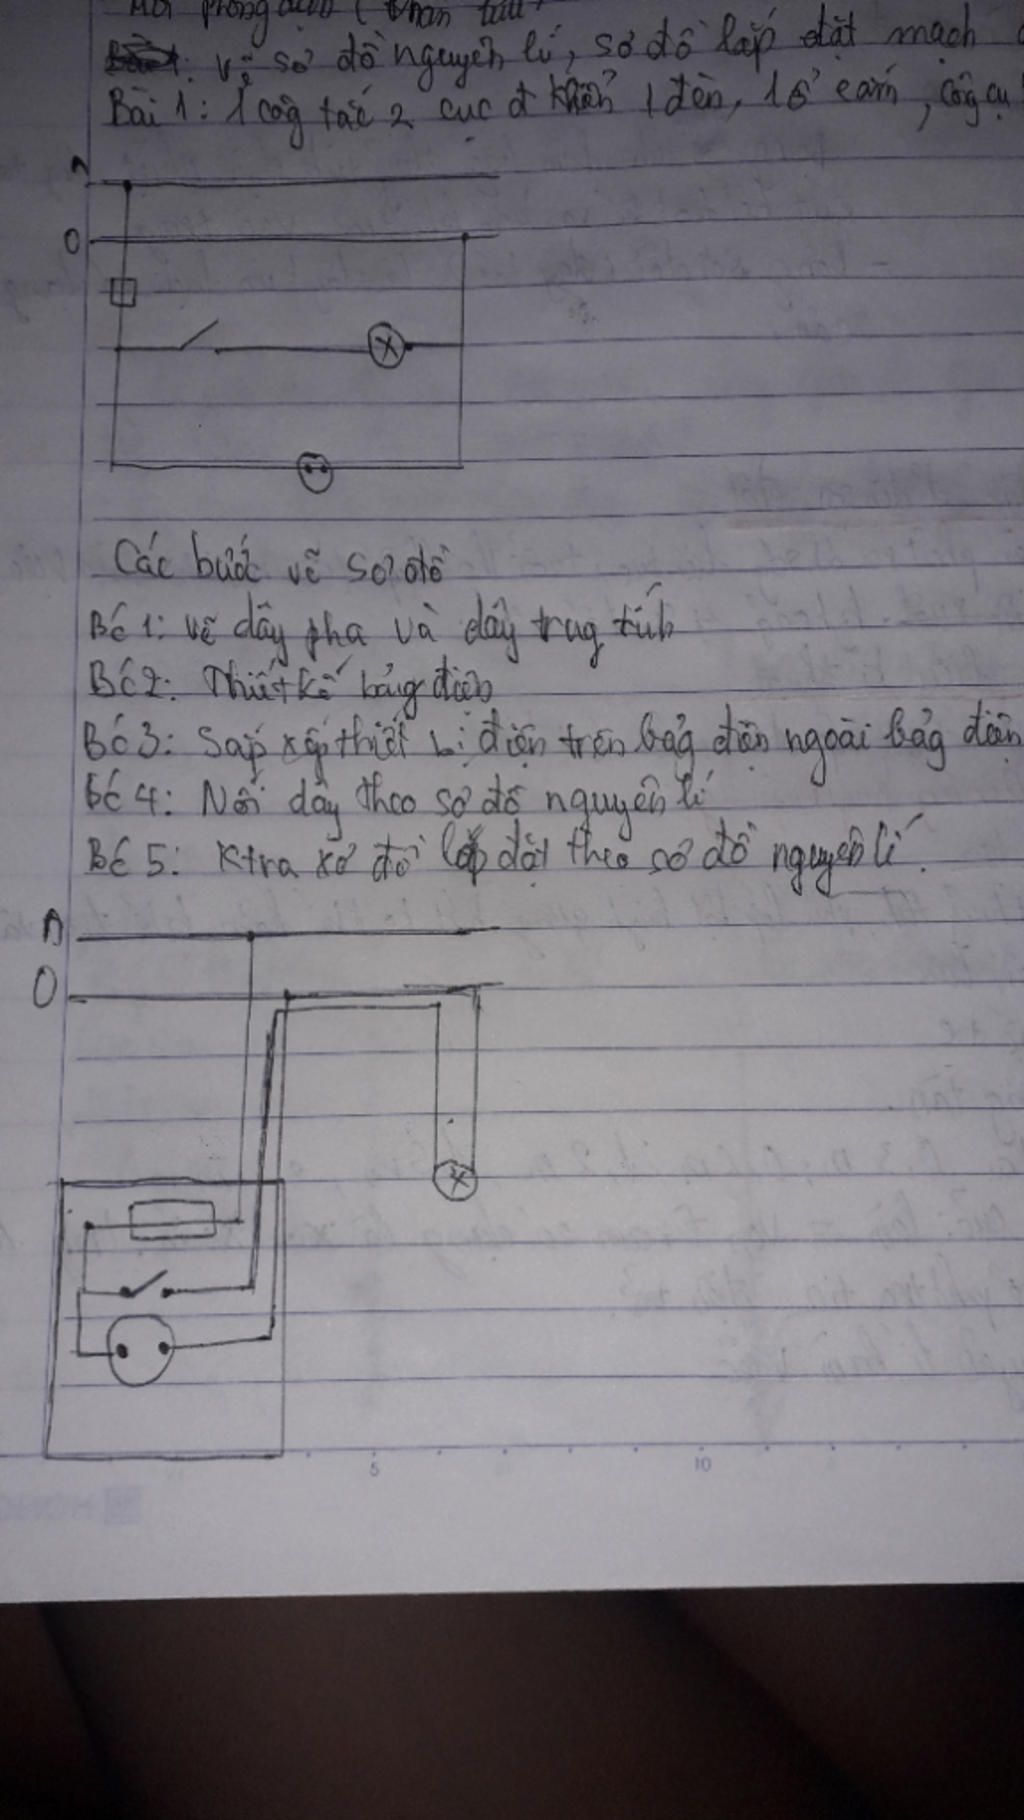 vẽ sơ đồ nguyên lí, sơ đồ lắp đặt mạch
Bài 1: 1 côg tắc 2 cực đ khiển 1 đèn, 1 ổ cắm, côg cụ
A
O
Các bước vẽ sơ đồ
Bć 1: vẽ dây pha và dây trug tính
Bć 2: Thiết kế bảng điện
Bć 3: Sắp xếp thiết bị điện trên bảg điện ngoài bảg điện
bć 4: Nối dây theo sơ đồ nguyên lí
Bć 5: Ktra xơ đồ lắp đặt theo sơ đồ nguyên lí.
A
O
5
10